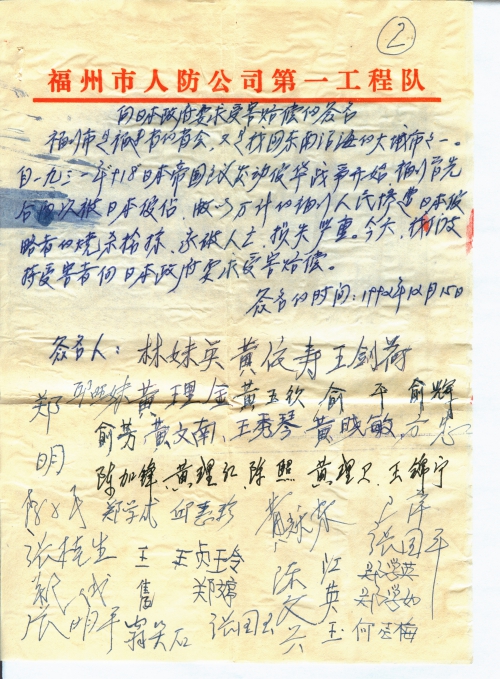 2
福州市人防公司第一工程队
向日本政府要求受害赔偿的签名
福州市是福建省的省会，又是我国东南沿海的大城市之一。
自一九三一年九·一八日本帝国主义发动侵华战争开始，福州首先
后两次被日本侵占，数以万计的福州人民惨遭日本侵
略者的烧杀抢掠，家破人亡，损失严重。今天，我们支
持受害者向日本政府要求受害赔偿。
签名的时间：1992年12月15日
签名人：林妹英 黄依寿 王剑荷
郑明
黄理金 黄玉钦 俞平 俞辉
俞芳 黄文南、王秀琴 黄晓敏、方忠
陈加锋、黄理红、陈熙 黄理卫、王锦宁
郑学斌 邱惠珍
张桂生 王 王贞玲 江 张国平
郑婷 陈文兴 英 郑学英
张国玉 玉 何 梅